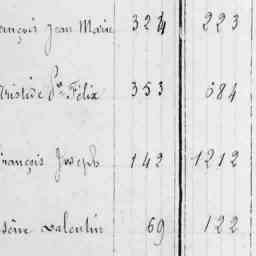 ançois Jean Marie 324 223
ristide Félix 353 684
rançois Joseph 142 1212
sène Valentin 69 122